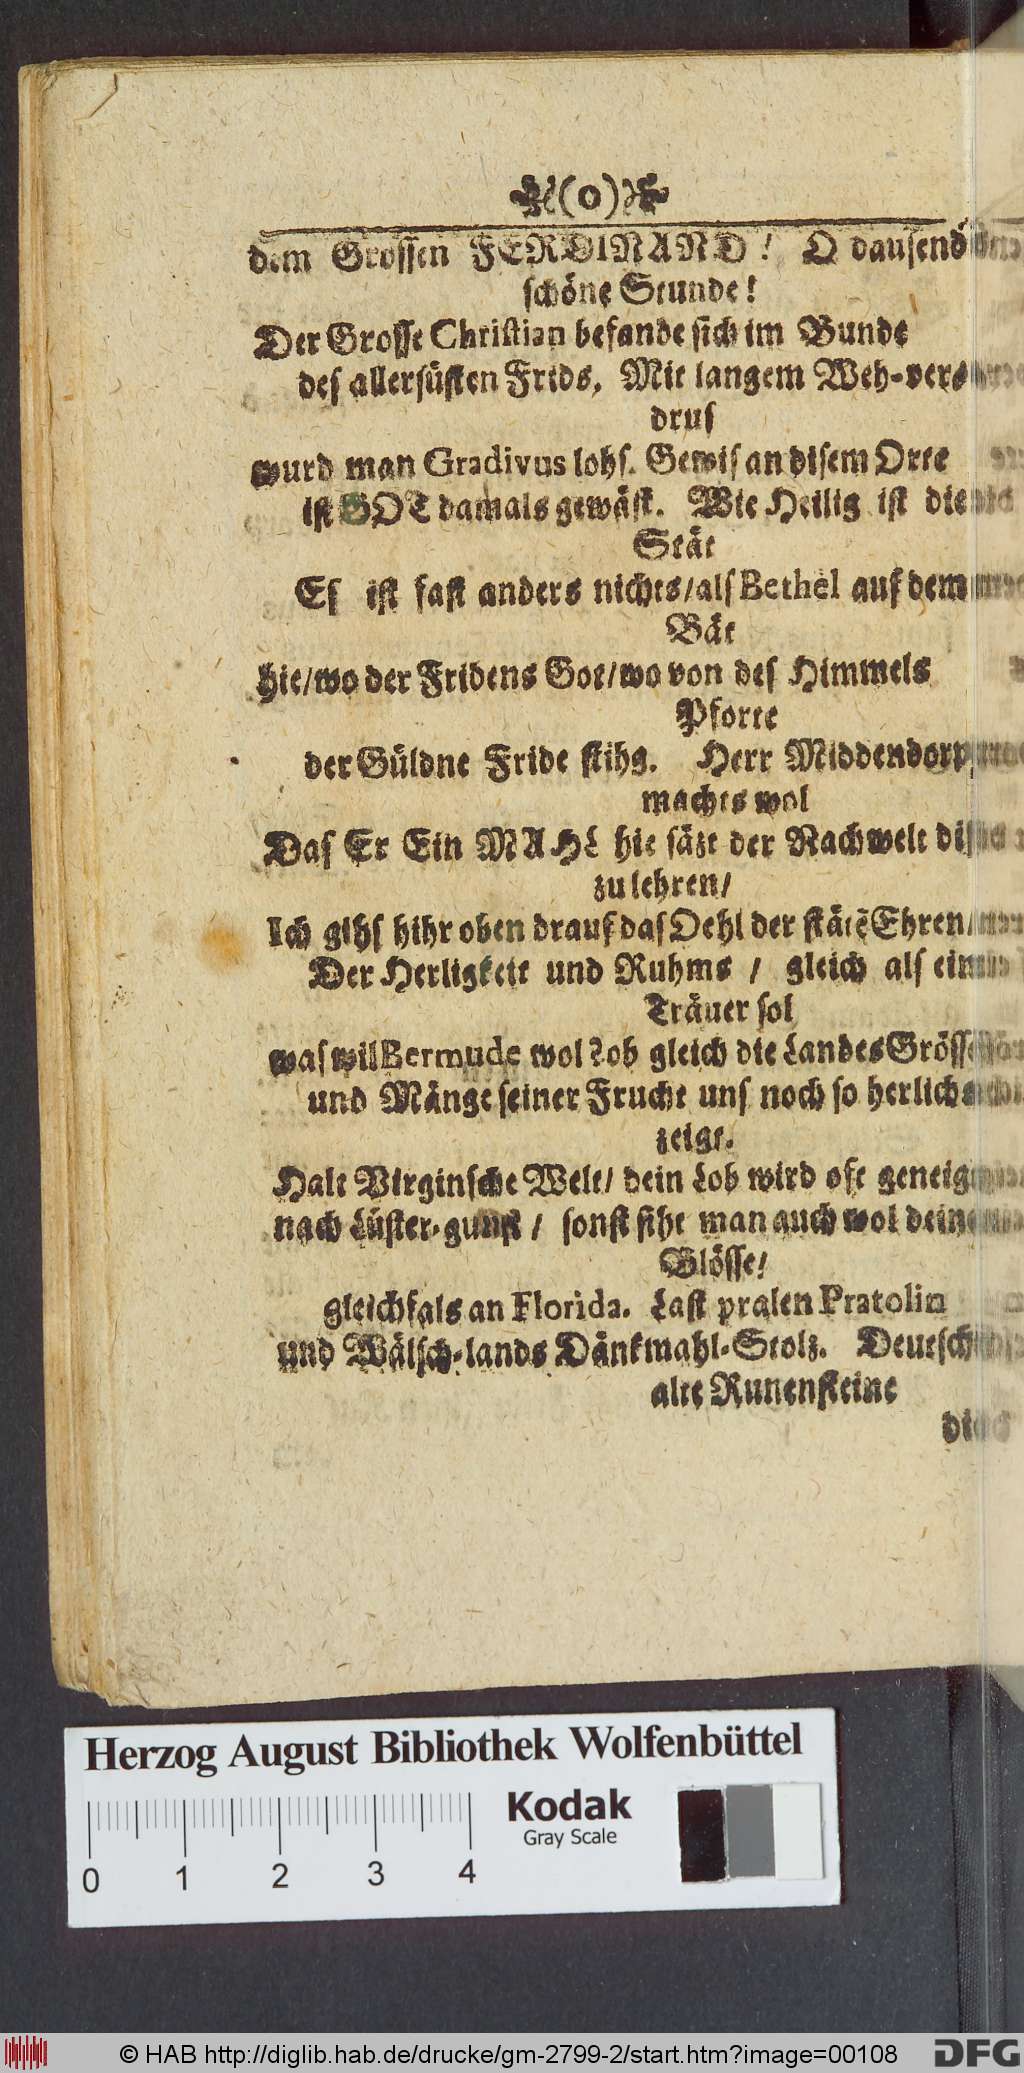 (0)
dem Grossen FERDINAND! O dausend
schöne Stunde!
Der Grosse Christian befande sich im Bunde
des allersüsten Frids, Mit langem Weh-vers
drus
wurd man Gradivus lohs. Gewis an disem Orte
ist GOT damals gewäst. Wie Heilig ist die
Stät
Es ist fast anders nichts/als Bethel auf dem
Bät
hie/wo der Fridens Got/wo von des Himmels
Pforte
der Güldne Fride stihg. Herr Middendorp
machts wol
Das Er Ein MAHL hie säzt der Nachwelt
zu lehren/
Ich gihs hihr oben drauf das Oehl der stätẽ Ehren/
Der Herligkeit und Ruhms / gleich als ein
Träuer sol
was wil Bermude wol? ob gleich die Landes Grösse
und Mänge seiner Frucht uns noch so herlich
zeigt.
Halt Virginsche Welt/ dein Lob wird oft
nach Lüster-gunst / sonst siht man auch wol
Blösse/
gleichfals an Florida. Last pralen Pratolin
und Wälsch-lands Dänkmahl-Stolz. Deutsch
alte Runensteine
Herzog August Bibliothek Wolfenbüttel
Kodak
Gray Scale
0 1 2 3 4
© HAB http://diglib.hab.de/drucke/gm-2799-2/start.htm?image=00108
DFG